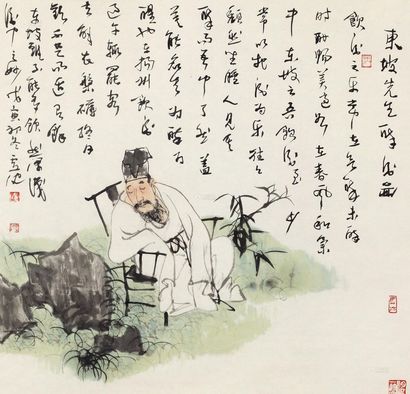 東坡先生醉
飲酒之樂常在欲醉未醉
時酣暢美適如在春風和氣
中東坡云吾飲酒至少
常以把酒為樂往往
頹然坐睡人見其
醉而吾中了然蓋
莫能名其為醉為
醒也在揚州飲酒
過午輒罷客
去解衣盤礴終日
歡不足而適有餘
東坡雖不能多飲然深識
酒中之妙戊寅初冬